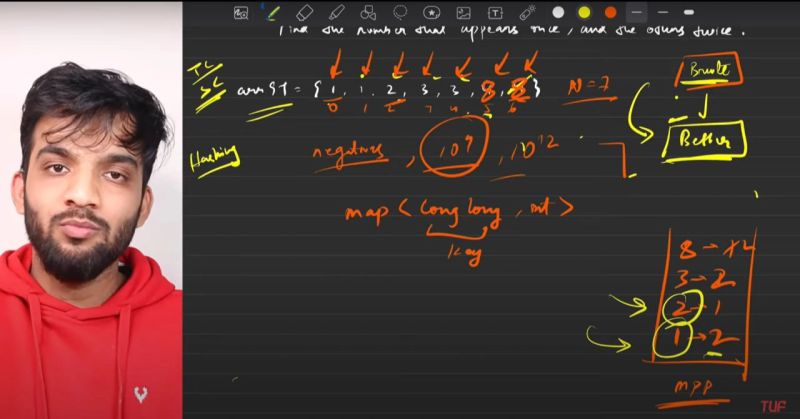 Find the number that appears once, and the others twice.
TC
SC
arr[] = { 1, 1, 2, 3, 3, 8, 8 } N=7
0 1 2 3 4 5 6
Brute
Better
Hashing
negatives, 10^9, 10^12
map < long long, int >
key
8 → 2
3 → 2
2 → 1
1 → 2
mpp
TUF